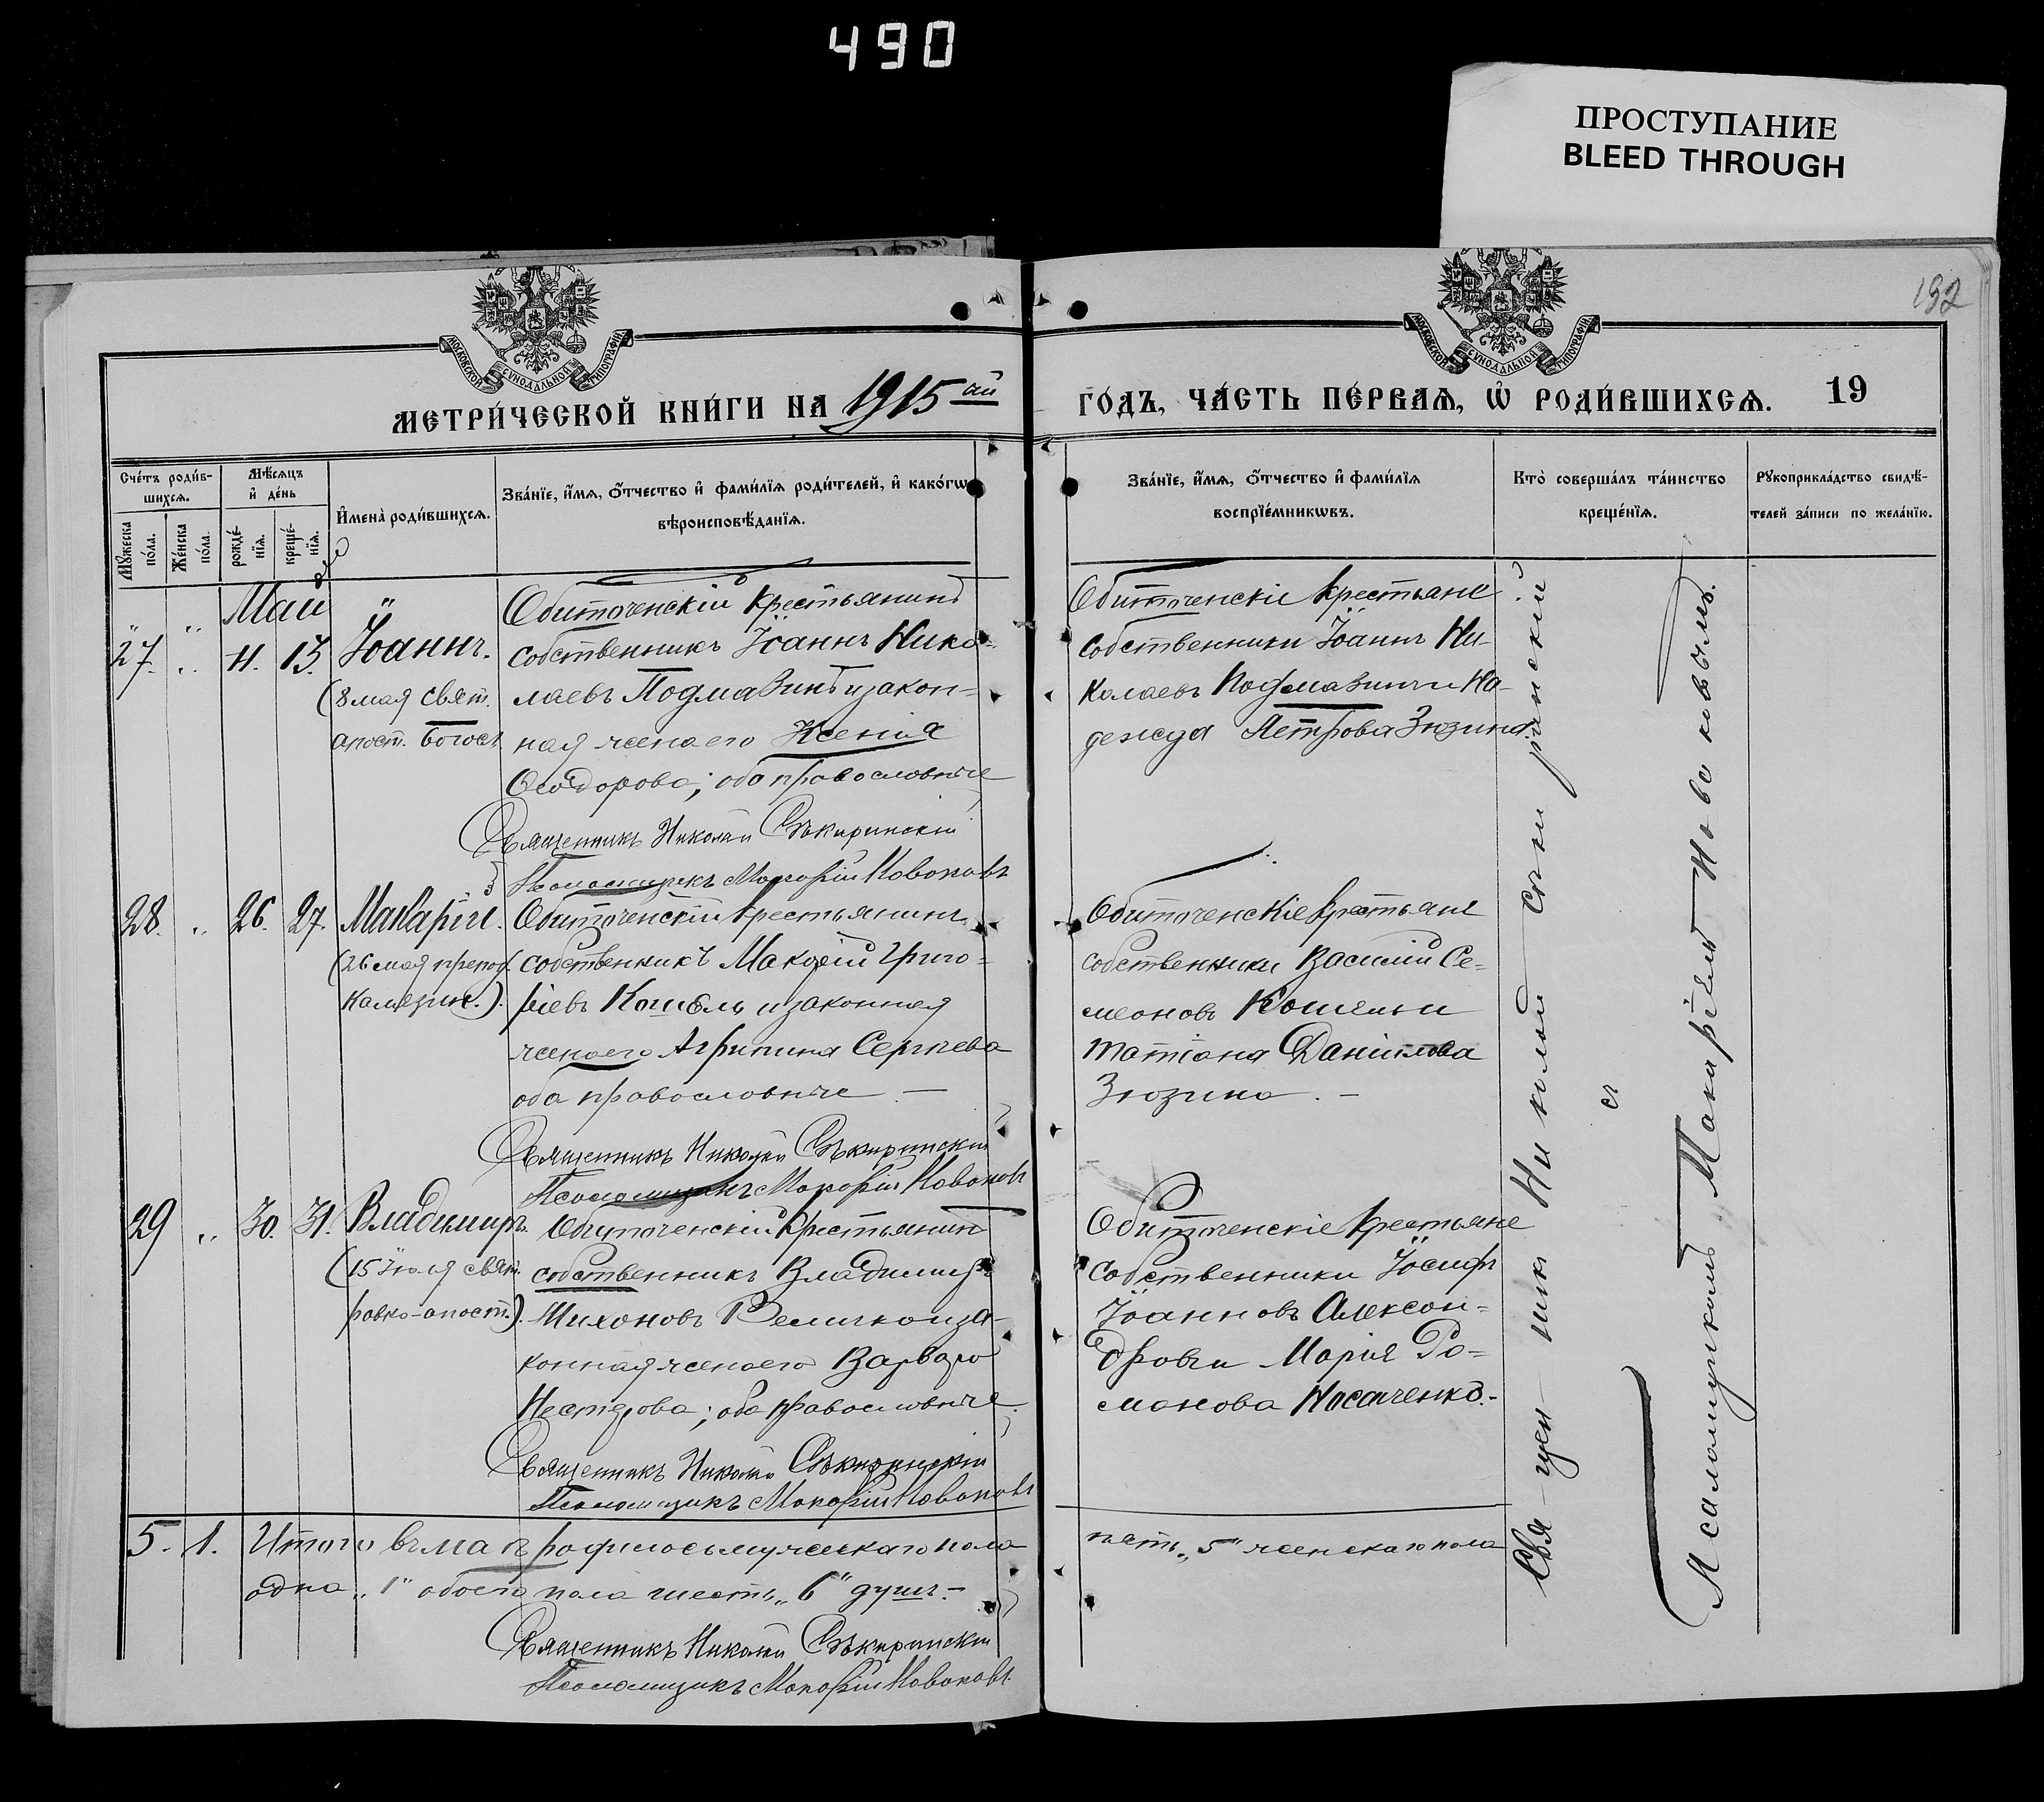 490
ПРОСТУПАНИЕ
BLEED THROUGH
192
МОСКОВСКОЙ СѴНОДАЛЬНОЙ ТИПОГРАФІИ
МОСКОВСКОЙ СѴНОДАЛЬНОЙ ТИПОГРАФІИ
МЕТРИ́ЧЕСКОЙ КНИ́ГИ НА 1915 ый
ГО́ДЪ, ЧА́СТЬ ПЕ́РВАѦ, Ѡ҆ РОДИ́ВШИХСѦ. 19
Сче́тъ роди́в-
шихсѧ.
Мꙋ́жеска по́ла.
Же́нска по́ла.
Мѣ́сѧцъ
и҆ де́нь
рожде́-
нїѧ.
креще́-
нїѧ.
И҆мена̀ роди́вшихсѧ.
Зва́нїе, и҆́мѧ, ѻ҆́тчество и҆ фами́лїѧ роди́телей, и҆ како́гѡ
вѣроисповѣ́данїѧ.
Зва́нїе, и҆́мѧ, ѻ҆́тчество и҆ фами́лїѧ
воспрїе́мникѡвъ.
Кто̀ соверша́лъ та́инство
креще́нїѧ.
Рꙋкоприкла́дство свидѣ́-
телей за́писи по жела́нїю.
Май
27. „ 11. 13. Іоаннъ.
(8 мая свят.
апост. Богосл.
Обиточенскій крестьянинъ
собственникъ Іоаннъ Нико-
лаевъ Подмазинъ и закон-
ная жена его Ксенія
Ѳеодорова; оба православные
Священникъ Николай Сѣкиринскій
Псаломщикъ Макарій Новоковъ
Обиточенскіе крестьяне
собственники Іоаннъ Ни-
колаевъ Подмазинъ и На-
дежда Петрова Зюзина.
28. „ 26. 27. Макарій.
(26 мая препод.
Калязин.).
Обиточенскій крестьянинъ
собственникъ Макарій Григо-
ріевъ Кошель и законная
жена его Агрипина Сергѣева
оба православные. —
Священникъ Николай Сѣкиринскій
Псаломщикъ Макарій Новоковъ
Обиточенскіе крестьяне
собственники Василій Се-
меоновъ Кошель и
Татіана Даніилова
Зюзина. —
29 „ 30. 31. Владимиръ.
(15 Іюля свят.
равно-апост.).
Обиточенскій крестьянинъ
собственникъ Владимиръ
Тихоновъ Величко и за-
конная жена его Варвара
Нестерова; оба православные.
Священникъ Николай Сѣкиринскій
Псаломщикъ Макарій Новоковъ
Обиточенскіе крестьяне
собственники Іосифъ
Іоанновъ Алексан-
дровъ и Марія Ро-
манова Носаченко.-
Свя-щен-никъ Николай Сѣкиринскій
съ
Псаломщикомъ Макаріемъ Новоковымъ.
5. 1. Итого въ маѣ родилось мужескаго пола
пять „5" женскаго пола
одна „1" обоего пола шесть „6" душъ. —
Священникъ Николай Сѣкиринскій
Псаломщикъ Макарій Новоковъ.